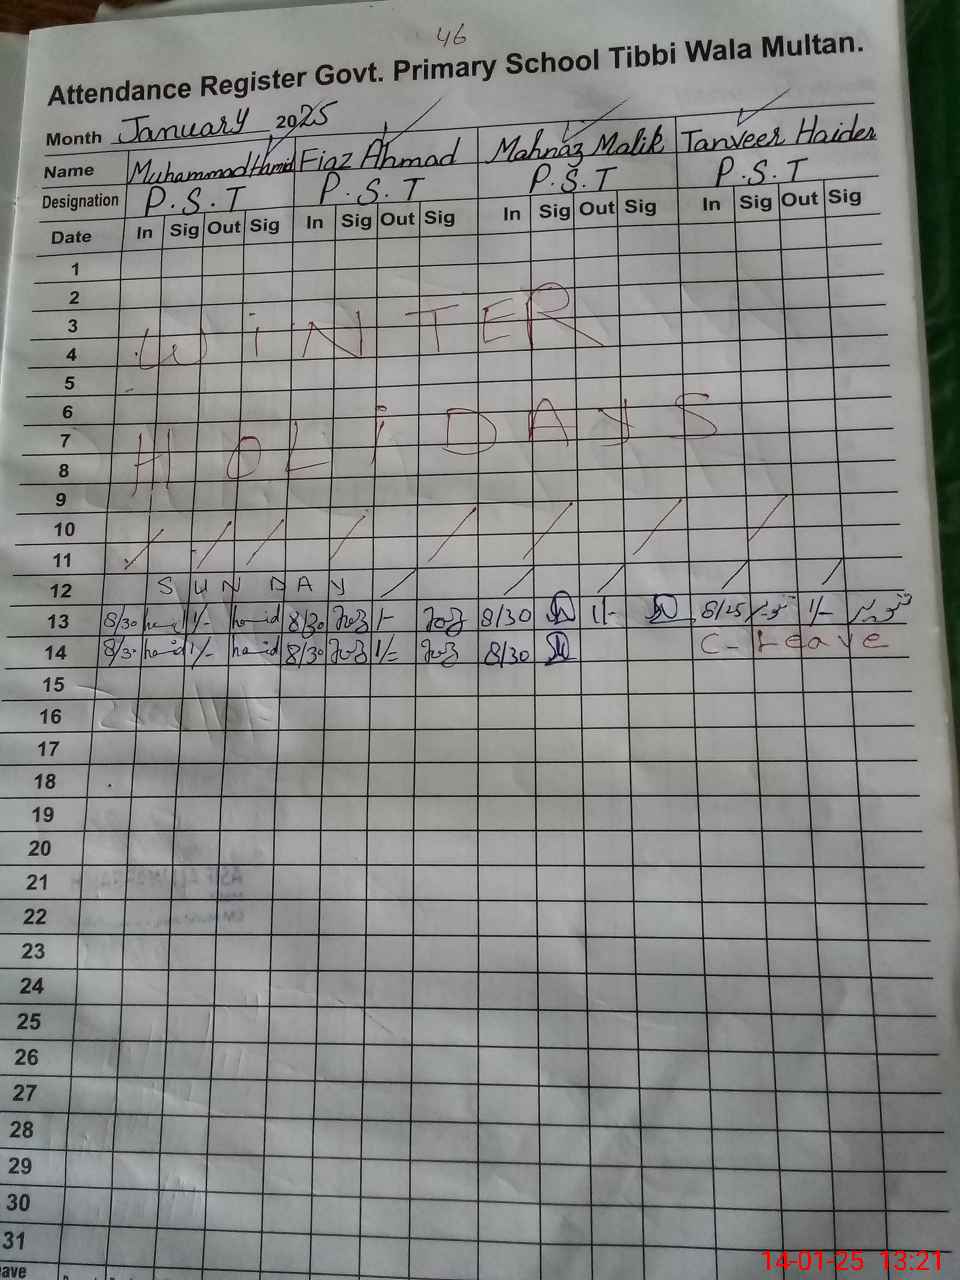 46
Attendance Register Govt. Primary School Tibbi Wala Multan.
Month January 2025
Name Muhammad Hamid Fiaz Ahmad Mahnaz Malik Tanveer Haider
Designation P.S.T P.S.T P.S.T P.S.T
Date In Sig Out Sig In Sig Out Sig In Sig Out Sig In Sig Out Sig
1
2
3
WiNTER
4
5
6
7
HOLiDAYS
8
9
10
11
12 SUNDAY
13 8/30 hamid 1/- hamid 8/30 1/- 8/30 1/- 8/25 تنویر 1/- تنویر
14 8/30 hamid 1/- hamid 8/30 1/- 8/30 C-Leave
15
16
17
18
19
20
21
22
23
24
25
26
27
28
29
30
31
14-01-25 13:21